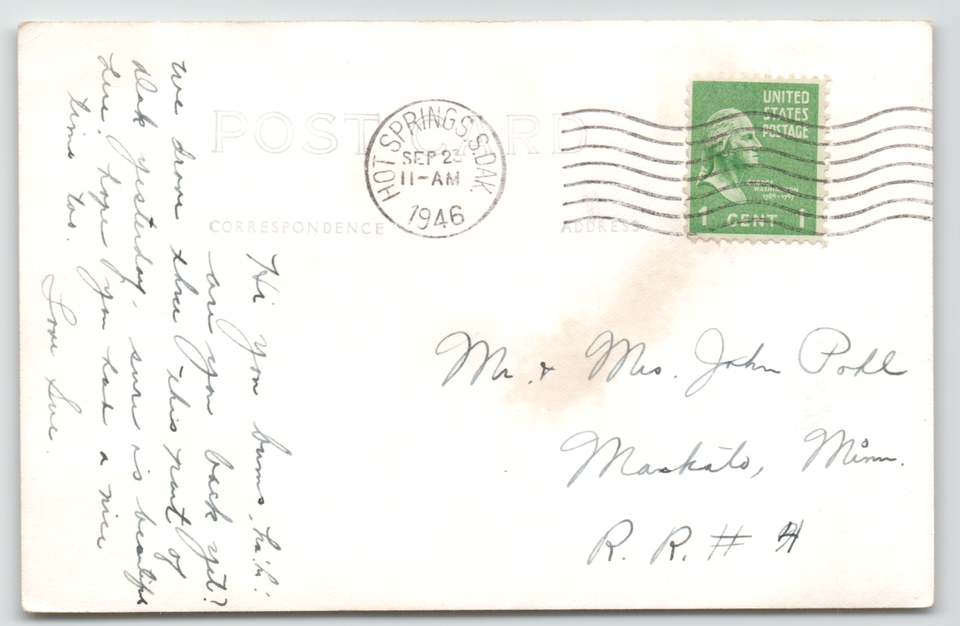 POST CARD
CORRESPONDENCE
ADDRESS
HOT SPRINGS, S. DAK.
SEP 23
11-AM
1946
UNITED
STATES
POSTAGE
GEORGE
WASHINGTON
1789-1797
1 CENT 1
Hi you bums, ha.h!
are you back yet?
We drove thru this part of
Dak yesterday. sure is beautiful
here, hope you had a nice
time too.
Love Sue.
Mr. & Mrs. John Pohl
Mankato, Minn.
R. R. # 4